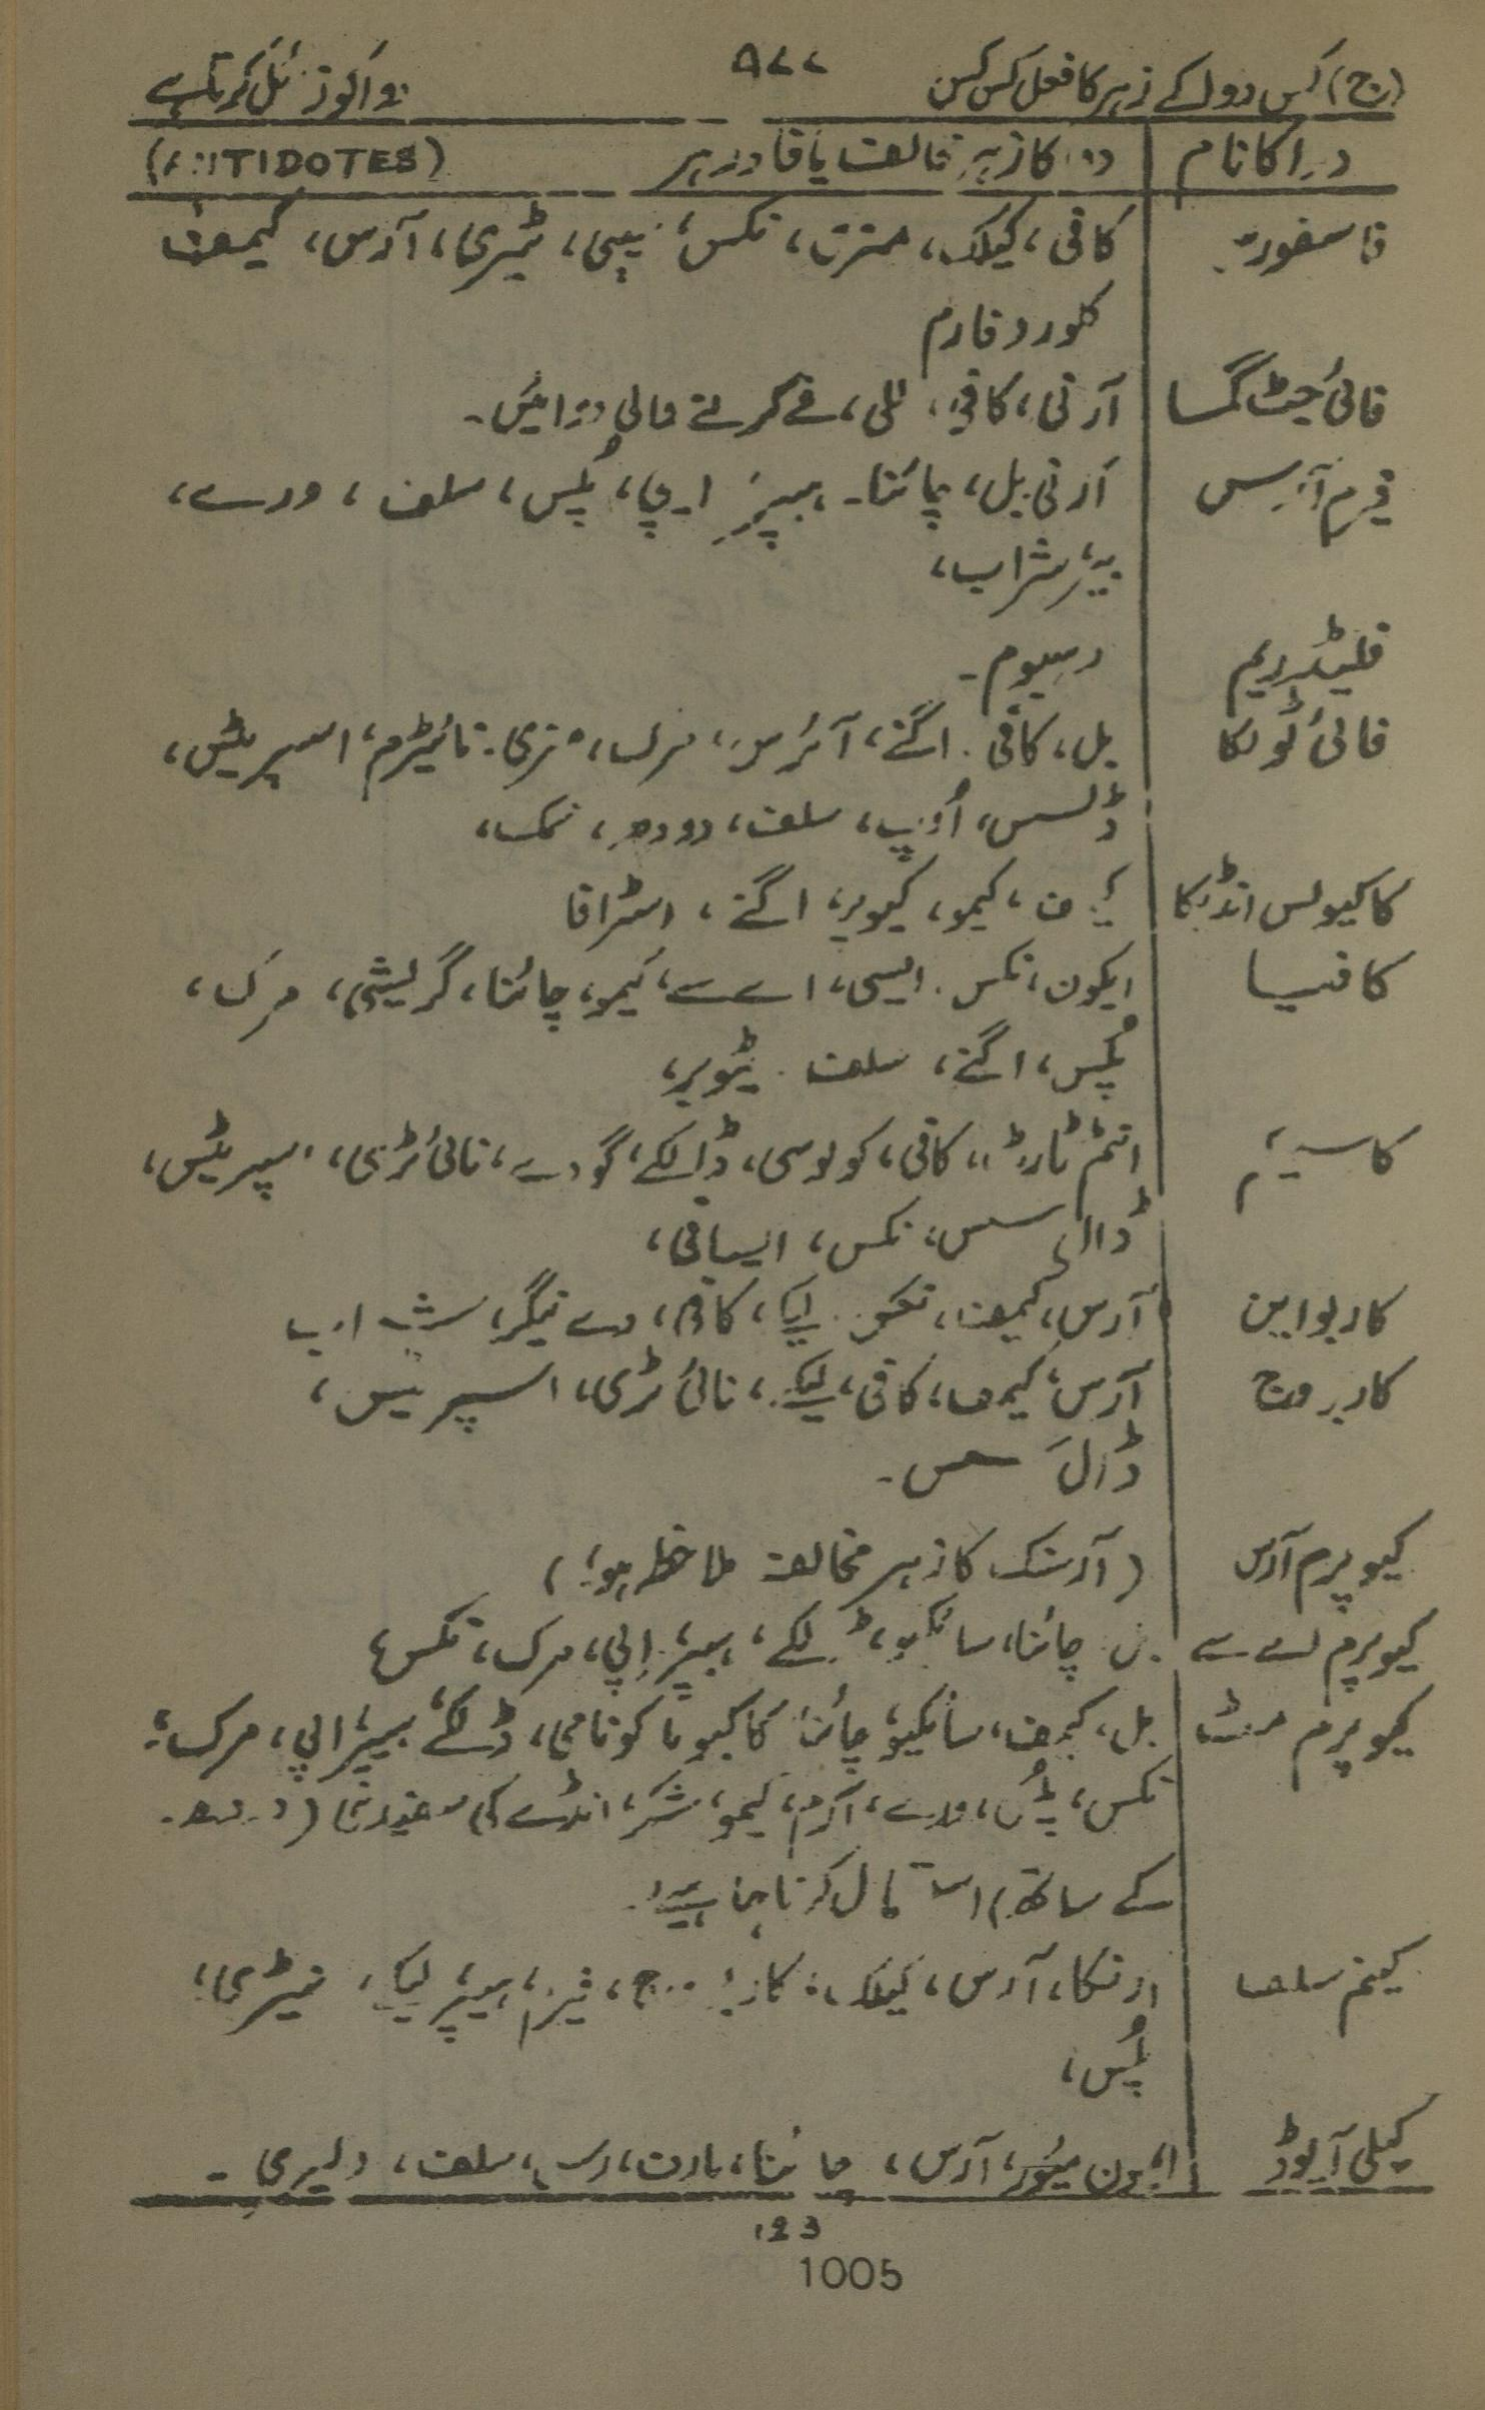 (ج) کس دوا کے زہر کا فعل کس کس ۹۷۷ دوا کو زائل کرتا ہے
دوا کا نام دوا کا زہر مخالف یا فادزہر (ANTIDOTES)
فاسفورس کافی، کیلک، مزرٹ، نکس، سیپی، ٹیری، آرس، کیمف
کلوروفارم
فائی جیٹ گما آرنی، کافی، للی، قے کرنے والی دوائیں۔
فیرم آرسس آرنی، بل، چائنا۔ ہیپر، اپی، پلس، سلف، ورے،
بیئر، شراب،
فلینڈریم رہیوم۔
فائی ٹولکا بل، کافی، اگنے، آئرس، مرک، مزی، نائیٹرم، اسپریٹس،
ڈلسس، اوپ، سلف، دودھ، نمک،
کاکیولس انڈیکا کیمف، کیمو، کیوپر، اگنے، اسٹافا
کافیا ایکون، نکس، ایسی، اے سے، کیمو، چائنا، گریشی، مرک،
پلس، اگنے، سلف، ٹیوبر،
کاسٹیکم انٹم ٹارٹ، کافی، کولوسی، ڈلکے، گوئے، نائی ٹری، اسپریٹس،
ڈال سس، نکس، ایسافی،
کاربو این آرس، کیمف، نکس، لیکے، کافی، وے نیگر، شراب
کاربو وج آرس، کیمف، کافی، لیکے، نائی ٹری، اسپریٹس،
ڈال سس۔
کیوپرم آرس (آرسنک کا زہر مخالف ملاحظہ ہو)
کیوپرم اے سے بل، چائنا، سائکیو، ڈلکے، ہیپر، اپی، مرک، نکس،
کیوپرم مٹ بل، کیمف، سائکیو، چائنا، کاکیو یا کونامی، ڈلکے، ہیپر، اپی، مرک،
نکس، پلس، ورے، آرم، کیمو، شکر، انڈے کی سفیدی (دودھ
کے ساتھ) استعمال کرنا چاہیے۔
کینم سلف ارنکا، آرس، کیلک، کاربو وج، فیرم، ہیپر، لیکے، نیٹری،
پلس،
کیلی آیوڈ ایمون میور، آرس، چائنا، مرک، رس، سلف، ولیری۔
123
1005